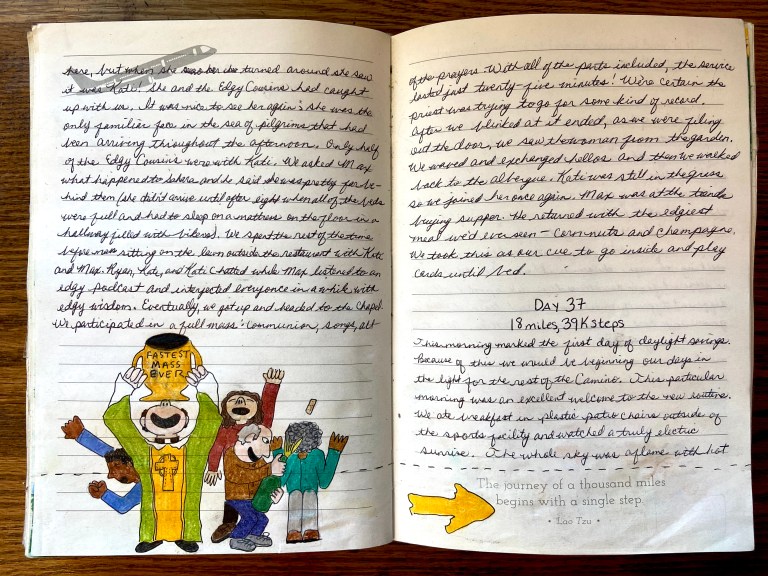 here, but when she turned around she saw
it was Kati! She and the Edgy Cousins had caught
up with us. It was nice to see her again; she was the
only familiar face in the sea of pilgrims that had
been arriving throughout the afternoon. Only half
of the Edgy Cousins were with Kati. We asked Max
what happened to and he said she was pretty far be-
hind them (she didn't arrive until after eight when all of the beds
were full and had to sleep on a mattress on the floor in a
hallway filled with bikers). We spent the rest of the time
before mass sitting on the lawn outside the restaurant with Kati
and Max. Ryan, Kate, and Kati chatted while Max listened to an
edgy podcast and interjected everyonce in a while with
edgy wisdom. Eventually, we got up and headed to the Chapel.
We participated in a full mass: Communion, songs, all
FASTEST
MASS
EVER
of the prayers. With all of the parts included, the service
lasted just twenty-five minutes! We're certain the
priest was trying to go for some kind of record.
After we blinked at it ended, as we were filing
out the door, we saw the woman from the garden.
We waved and exchanged hellos and then we walked
back to the albergue. Kati was still in the grass
so we joined her once again. Max was at the tienda
buying supper. He returned with the edgiest
meal we'd ever seen - corn nuts and champagne.
We took this as our cue to go inside and play
cards until bed.
DAY 37
18 miles, 39K steps
This morning marked the first day of daylight savings.
Because of this we would be beginning our days in
the light for the rest of the Camino. This particular
morning was an excellent welcome to the new routine.
We ate breakfast in plastic patio chairs outside of
the sports facility and watched a truly electric
sunrise. The whole sky was aflame with hot
The journey of a thousand miles
begins with a single step
• Lao Tzu •